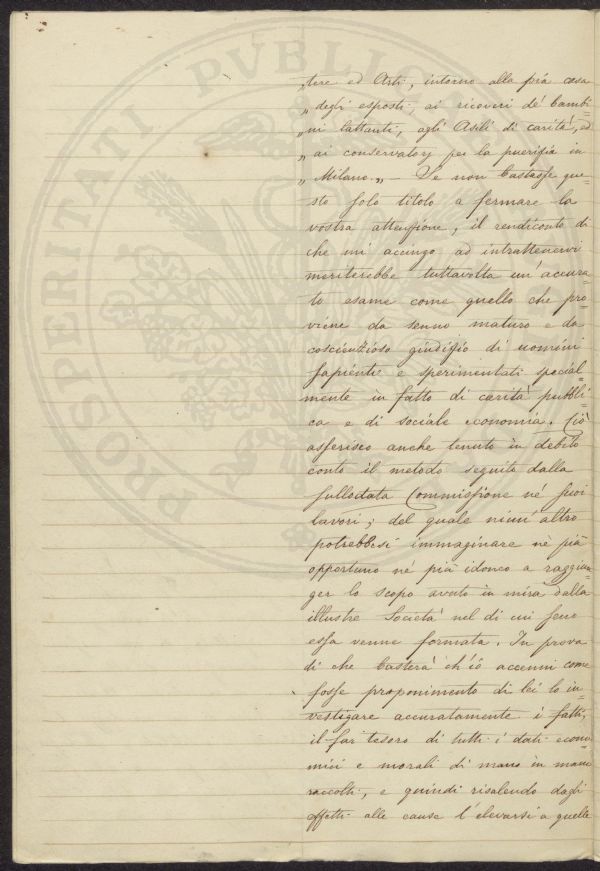 „tere ed Arti, intorno alla pia casa
„ degli esposti, ai ricoveri de' bambi=
„ ni lattanti, agli Asili di carità, ed
„ ai conservatorj per la puerizia in
„ Milano.„ — Se non bastasse que=
sto solo titolo a fermare la
vostra attenzione, il rendiconto di
che mi accingo ad intrattenervi
meriterebbe tuttavolta un' accura=
to esame come quello che pro=
viene da senno maturo e da
coscienzioso giudizio di uomini
sapienti e sperimentati special=
mente in fatto di carità pubbli=
ca e di sociale economia. Ciò
asserisco anche tenuto in debito
conto il metodo seguito dalla
sullodata Commissione ne' suoi
lavori; del quale niun' altro
potrebbesi immaginare nè più
opportuno nè più idoneo a raggiun=
ger lo scopo avuto in mira dalla
illustre Società nel di cui seno
essa venne formata. In prova
di che basterà ch'io accenni come
fosse proponimento di lei lo in=
vestigare accuratamente i fatti,
il far tesoro di tutti i dati econo=
mici e morali di mano in mano
raccolti, e quindi risalendo dagli
effetti alle cause l'elevarsi a quelle
PROSPERITATI PVBLICAE